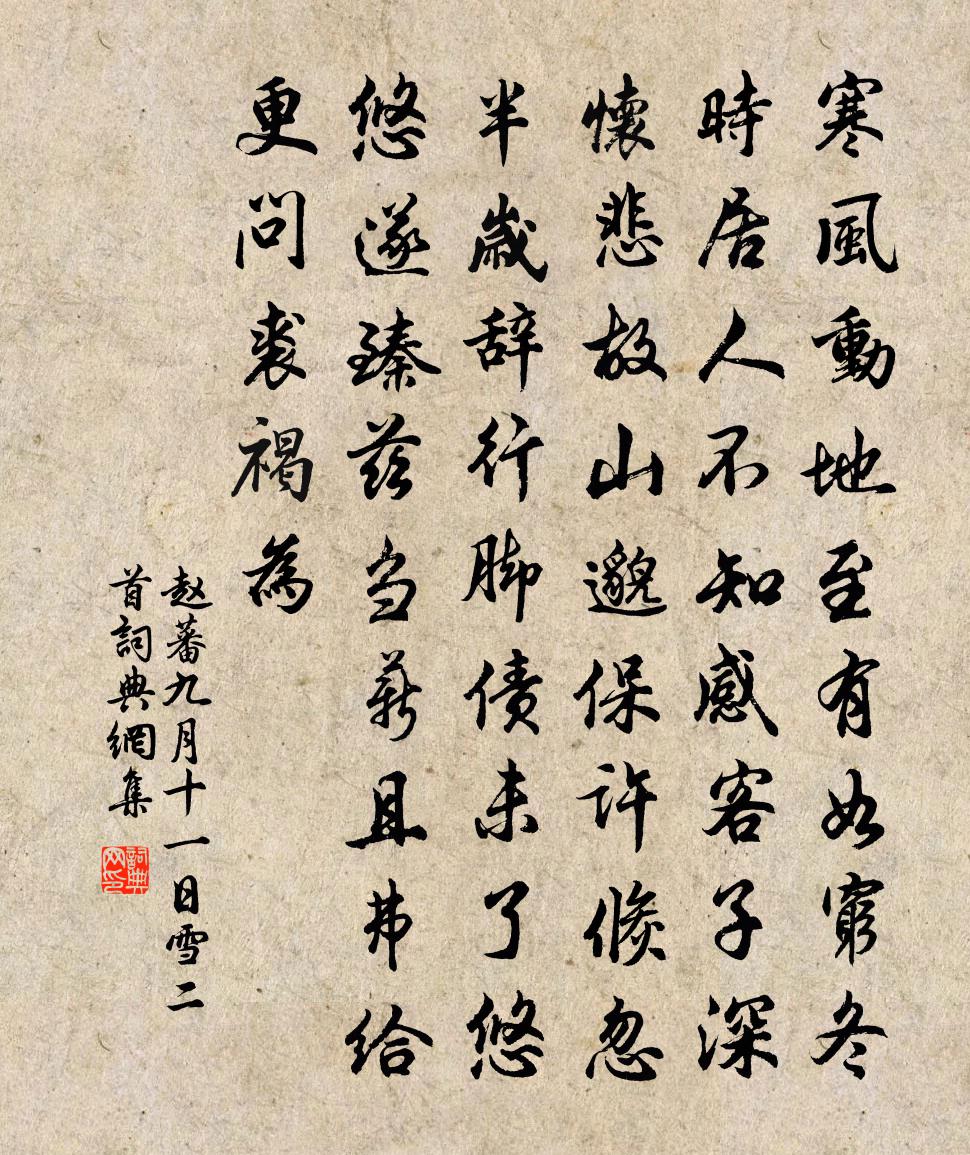 寒風動地至有如窮冬
時居人不知感客子深
懷悲故山邈保許倏忽
半歲辞行脚债未了悠
悠遂臻兹刍薪且弗给
更問裘褐為
赵蕃九月十一日雪二
首詞典網集
詞典网印